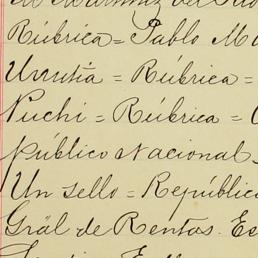 M Martinez del Rio
Rúbrica = Pablo M
Urrutia = Rúbrica =
Puchi = Rúbrica =
público Nacional
Un sello = Repúblic
Gräl de Rentas. Es